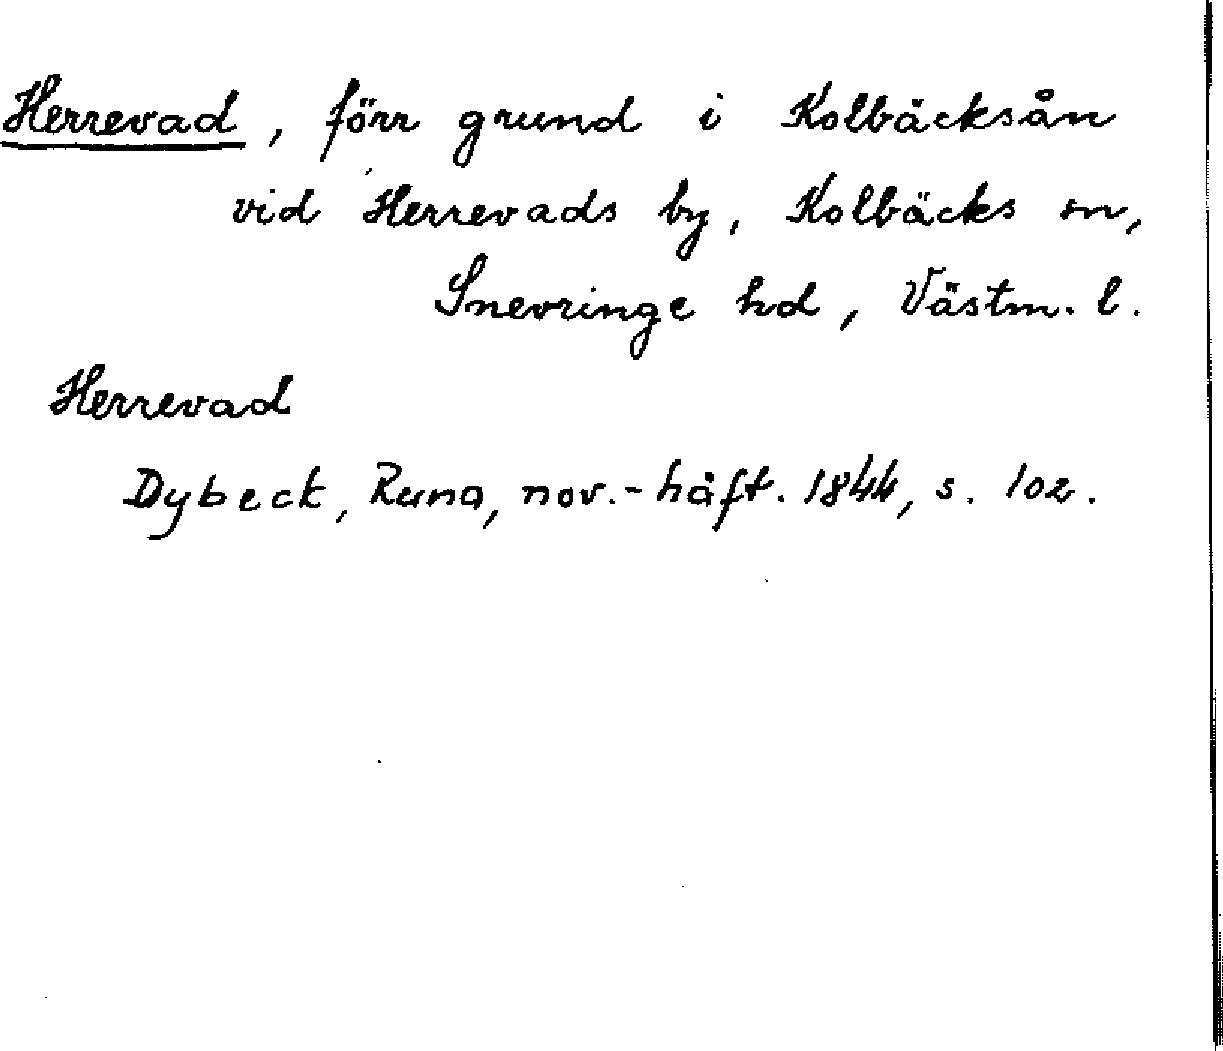 Herrevad, förr grund i Kolbäcksån
vid Herrevads by, Kolbäcks sn,
Snevringe hd, Västm. l.
Herrevad
Dybeck, Runa, nov.-häft. 1844, s. 102.